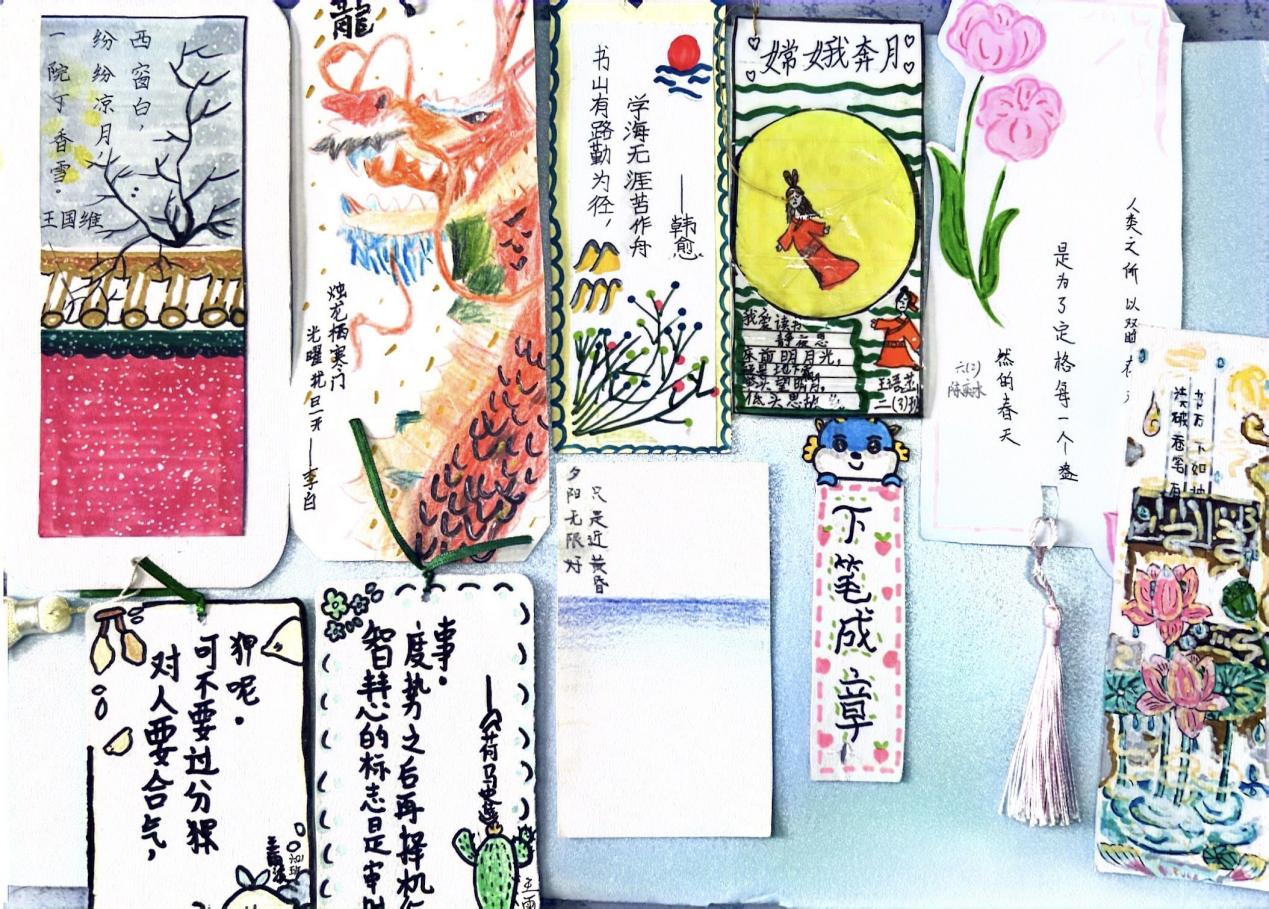 西窗白，
纷纷凉月，
一院丁香雪。
王国维
龍
烛龙栖寒门
光曜犹旦开——李白
书山有路勤为径，
学海无涯苦作舟
——韩愈
嫦娥奔月
我爱读书
静夜思
床前明月光，
疑是地下霜。
举头望明月，
低头思故
二(3)班
人类之所以
是为了定格每一个盎
然的春天
六(2)
对人要合气，
可不要过分狎
狎呢。
智慧的标志是审时
度势之后再择机行
事。
——荷马史诗
夕阳无限好
只是近黄昏
下笔成章
读破卷笔有